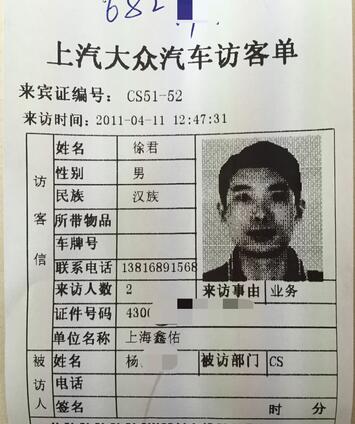 682
上汽大众汽车访客单
来宾证编号: CS51-52
来访时间: 2011-04-11 12:47:31
访客信
姓名 徐君
性别 男
民族 汉族
所带物品
车牌号
联系电话 13816891568
来访人数 2 来访事由 业务
证件号码 430
单位名称 上海鑫佑
被访人
姓名 杨 被访部门 CS
电话
签名 时 分